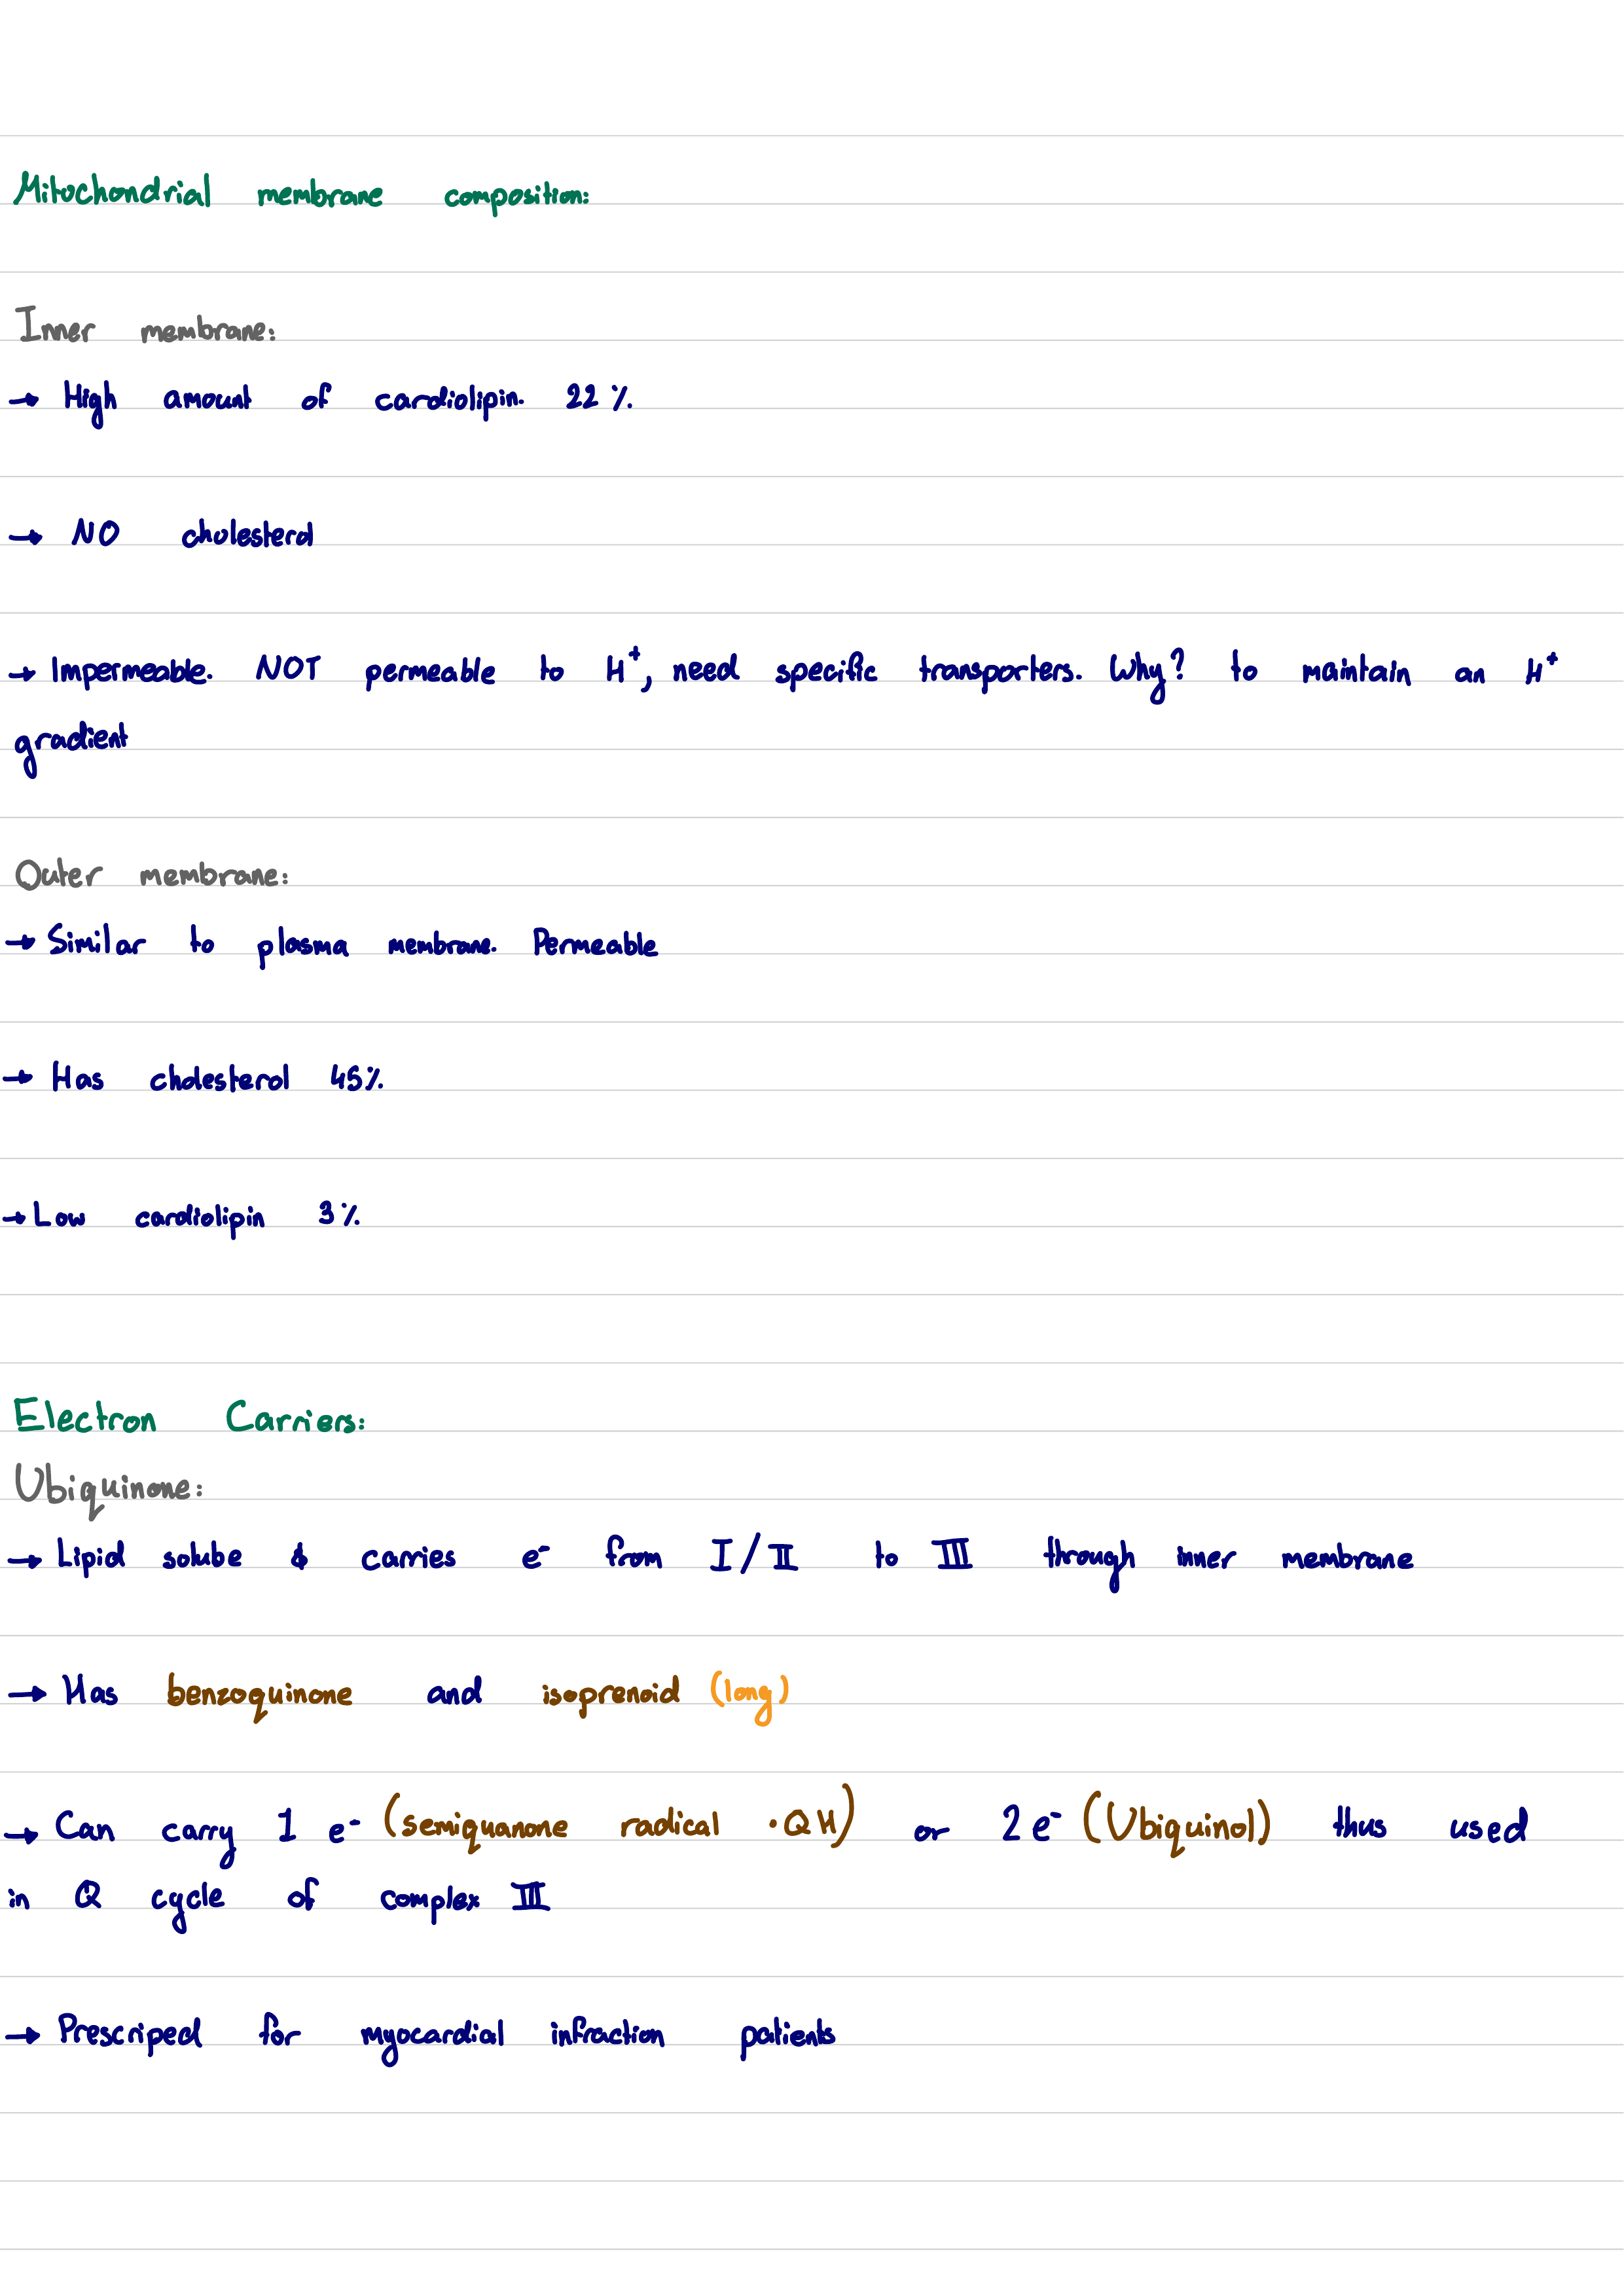 Mitochondrial membrane composition:
Inner membrane:
→ High amount of cardiolipin. 22%
→ NO cholesterol
→ Impermeable. NOT permeable to H⁺, need specific transporters. Why? to maintain an H⁺
gradient
Outer membrane:
→ Similar to plasma membrane. Permeable
→ Has cholesterol 45%
→ Low cardiolipin 3%
Electron Carriers:
Ubiquinone:
→ Lipid solube & carries e⁻ from I/II to III through inner membrane
→ Has benzoquinone and isoprenoid (long)
→ Can carry 1 e⁻ (semiquanone radical •QH) or 2 e⁻ (Ubiquinol) thus used
in Q cycle of complex III
→ Prescriped for myocardial infraction patients